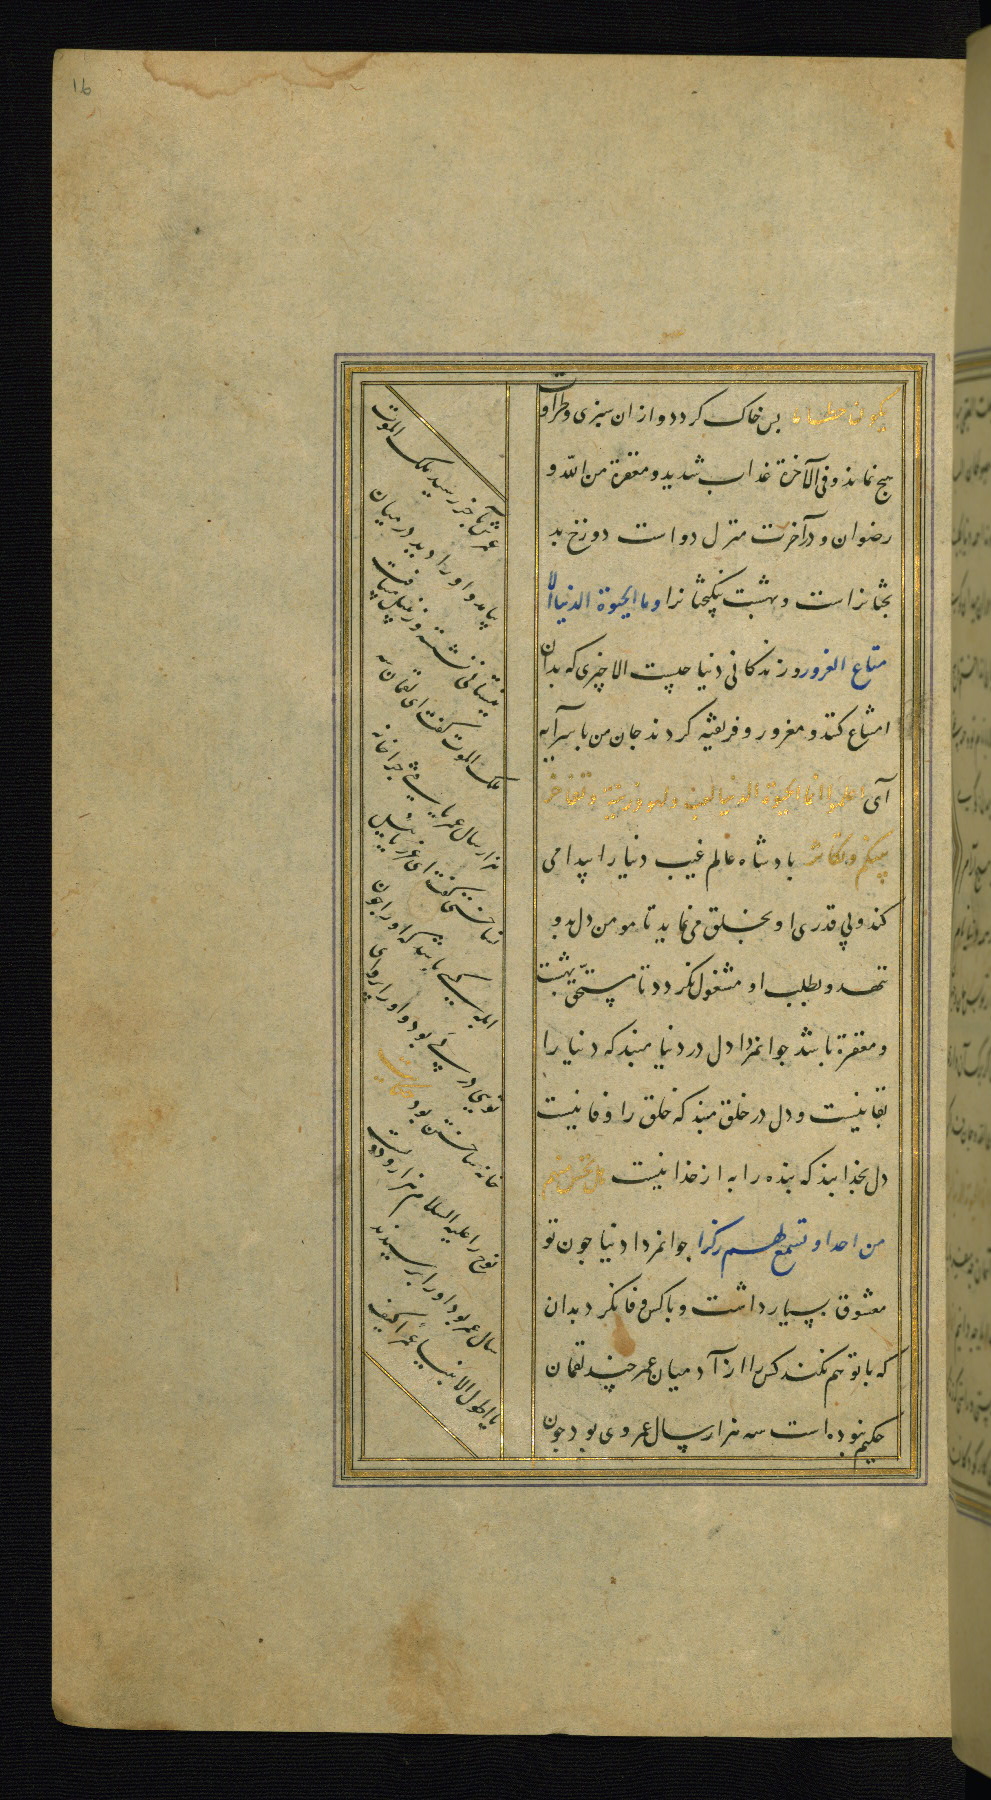 16
یکون حطاما پس خاک کردد و ازان سبزی و طراوت
هیچ نماند و فی الآخرة عذاب شدید و مغفرة من الله و
رضوان و در آخرت منزل دو است دوزخ بد
بختانراست و بهشت نیکبختانرا و ما الحیوة الدنیا الا
متاع الغرور و زندکانی دنیا چیست الا چیزی که بدان
امتاع کنند و مغرور و فریفته کردند جان من با سر آیه
آی اعلموا انما الحیوة الدنیا لعب و لهو و زینة و تفاخر
بینکم و تکاثر پادشاه عالم غیب دنیا را پیدا می
کند و بی قدری او بخلق می نماید تا مومن دل بدو
ننهد و بطلب او مشغول نکردد تا مستحق بهشت
و مغفرة باشد جوانمردا دل در دنیا مبند که دنیا را
بقا نیست و دل در خلق مبند که خلق را وفا نیست
دل بخدا بند که بنده را به از خدا نیست هل تحس منهم
من احد او تسمع لهم رکزا جوانمردا دنیا چون تو
معشوق بسیار داشت و با کس وفا نکرد بدان
که با تو هم نکند کس را از آدمیان عمر چند لقمان
حکیم نبوده است سه هزار سال عمر وی بود چون
عمرش بآخر رسید ملک الموت
بیامد و او را دید در میان
نیستانی نشسته و زنبیل میبافت
ملک الموت کفت ای لقمان سه
هزار سال عمر یافتی چرا خانه
نساختی کفت ای عزرائیل
ابله کسی باشد که او را چون
تویی در پی بود و او را پروای
خانه ساختن بود حکایت
نوح را علیه السلام هزار و دویست
سال عمر بود او را پرسیدند
یا اطول الانبیاء عمرا کیف